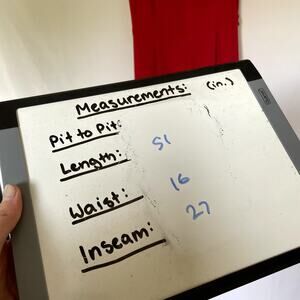 Measurements: (in.)
Pit to Pit:
Length: 51
Waist: 16
Inseam: 27